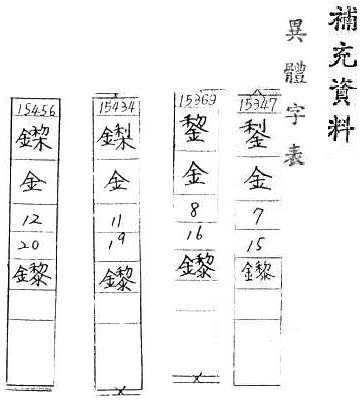 補充資料
異體字表
15347
鋫
金
7
15
鑗
15369
金
8
16
鑗
15434
鏫
金
11
19
鑗
15456
金
12
20
鑗